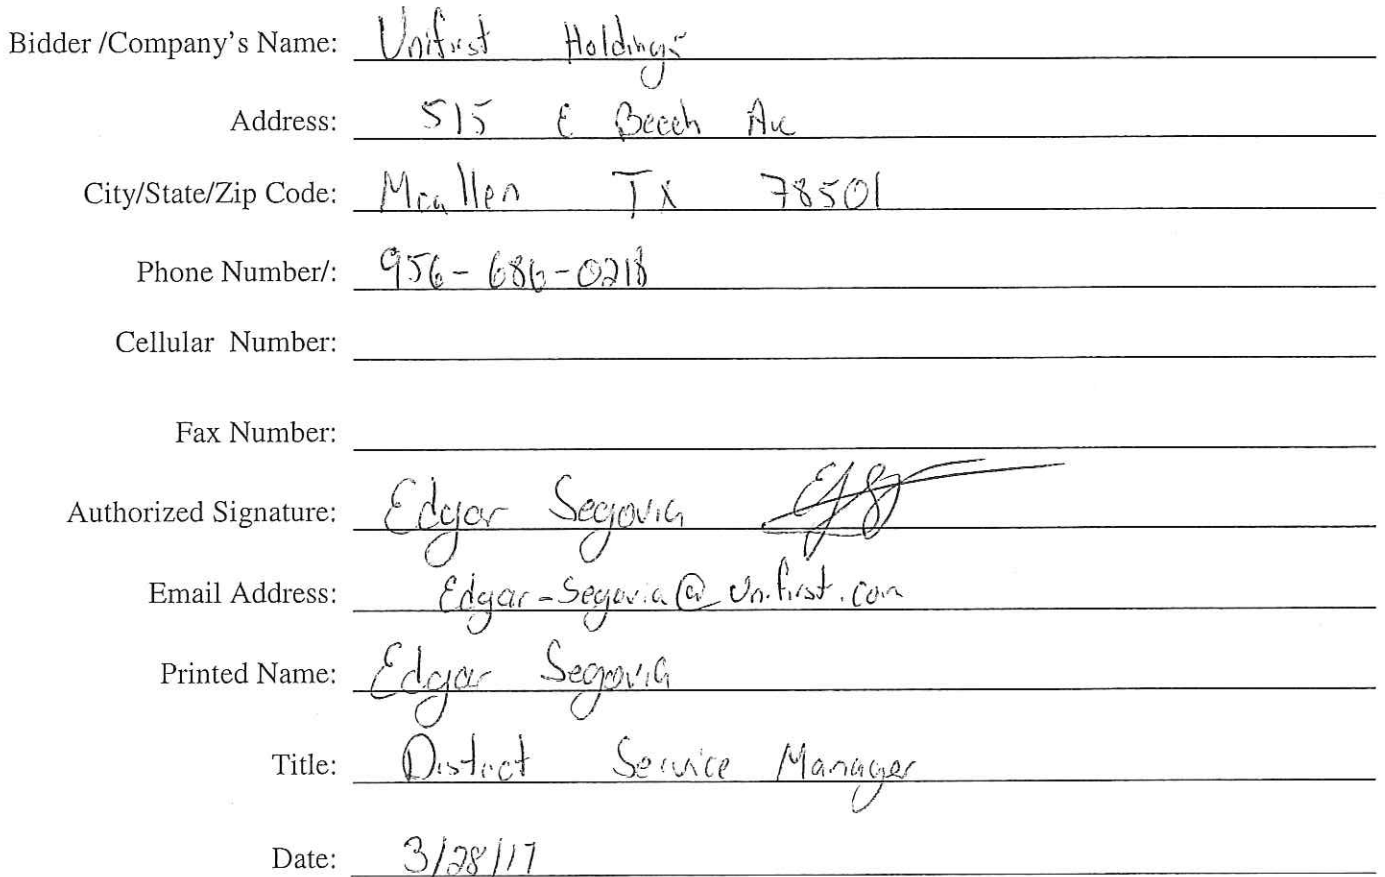 Bidder /Company's Name: Unifirst Holdings
Address: 515 E Beech Ave
City/State/Zip Code: Mcallen Tx 78501
Phone Number/: 956-686-0218
Cellular Number:
Fax Number:
Authorized Signature: Edgar Segovia
Email Address: Edgar-Segovia@Unifirst.com
Printed Name: Edgar Segovia
Title: District Service Manager
Date: 3/28/17